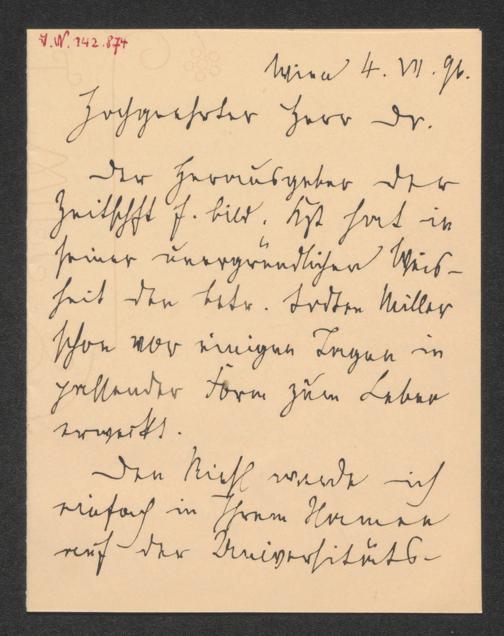 J.N. 142.874
Wien 4. VII. 96.
Hochgeehrter Herr Dr.
Der Herausgeber der
Zeitschft f. bild. Kst hat in
seiner unergründlichen Weis-
heit den betr. todten Miller
schon vor einigen Tagen in
passender Form zum Leben
erweckt.
Den Riehl werde ich
einfach in Ihrem Namen
auf der Universitäts-